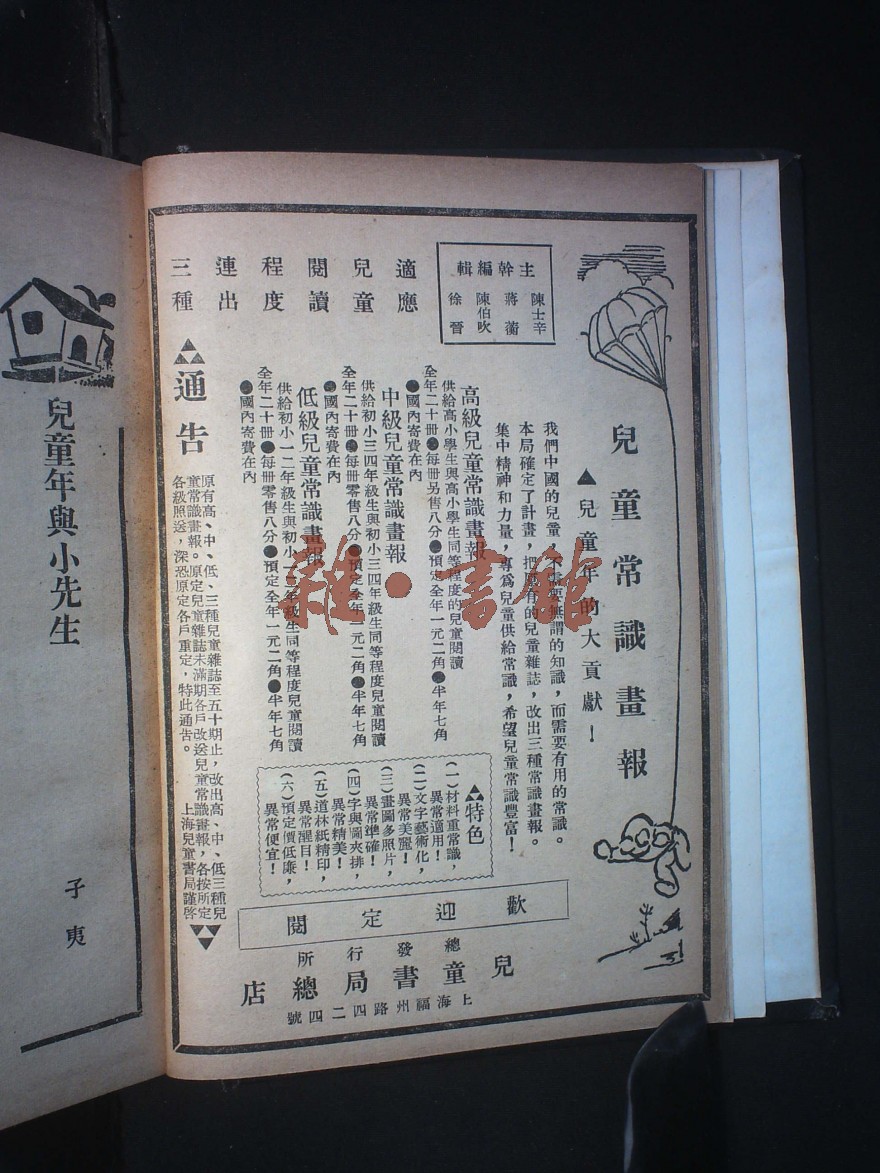 兒童常識畫報
▲兒童年的大貢獻！
主幹編輯
陳士辛
蔣蘅
陳伯吹
徐晉
我們中國的兒童，不需要無謂的知識，而需要有用的常識。
本局確定了計畫，把原有的兒童雜誌，改出三種常識畫報。
集中精神和力量，專爲兒童供給常識，希望兒童常識豐富！
適應
兒童
閱讀
程度
連出
三種
高級兒童常識畫報
供給高小學生與高小學生同等程度的兒童閱讀
全年二十册●每册另售八分●預定全年一元二角●半年七角
●國內寄費在內
中級兒童常識畫報
供給初小三四年級生與初小三四年級生同等程度兒童閱讀
全年二十册●每册零售八分●預定全年一元二角●半年七角
●國內寄費在內
低級兒童常識畫報
供給初小一二年級生與初小一二年級生同等程度兒童閱讀
全年二十册●每册零售八分●預定全年一元二角●半年七角
●國內寄費在內
特色
(一)材料重常識，
異常適用！
(二)文字藝術化，
異常美麗！
(三)畫圖多照片，
異常準確！
(四)字與圖夾排，
異常精美！
(五)道林紙精印，
異常醒目！
(六)預定價低廉，
異常便宜！
通告
原有高、中、低、三種兒童雜誌至五十期止，改出高、中、低三種兒
童常識畫報。原定兒童雜誌未滿期各戶改送兒童常識畫報，各按所定
各級照送，深恐原定各戶重定，特此通告。
上海兒童書局謹啓
歡迎定閱
總發行所
兒童書局總店
上海福州路四二四號
兒童年與小先生
子夷
雜·書館